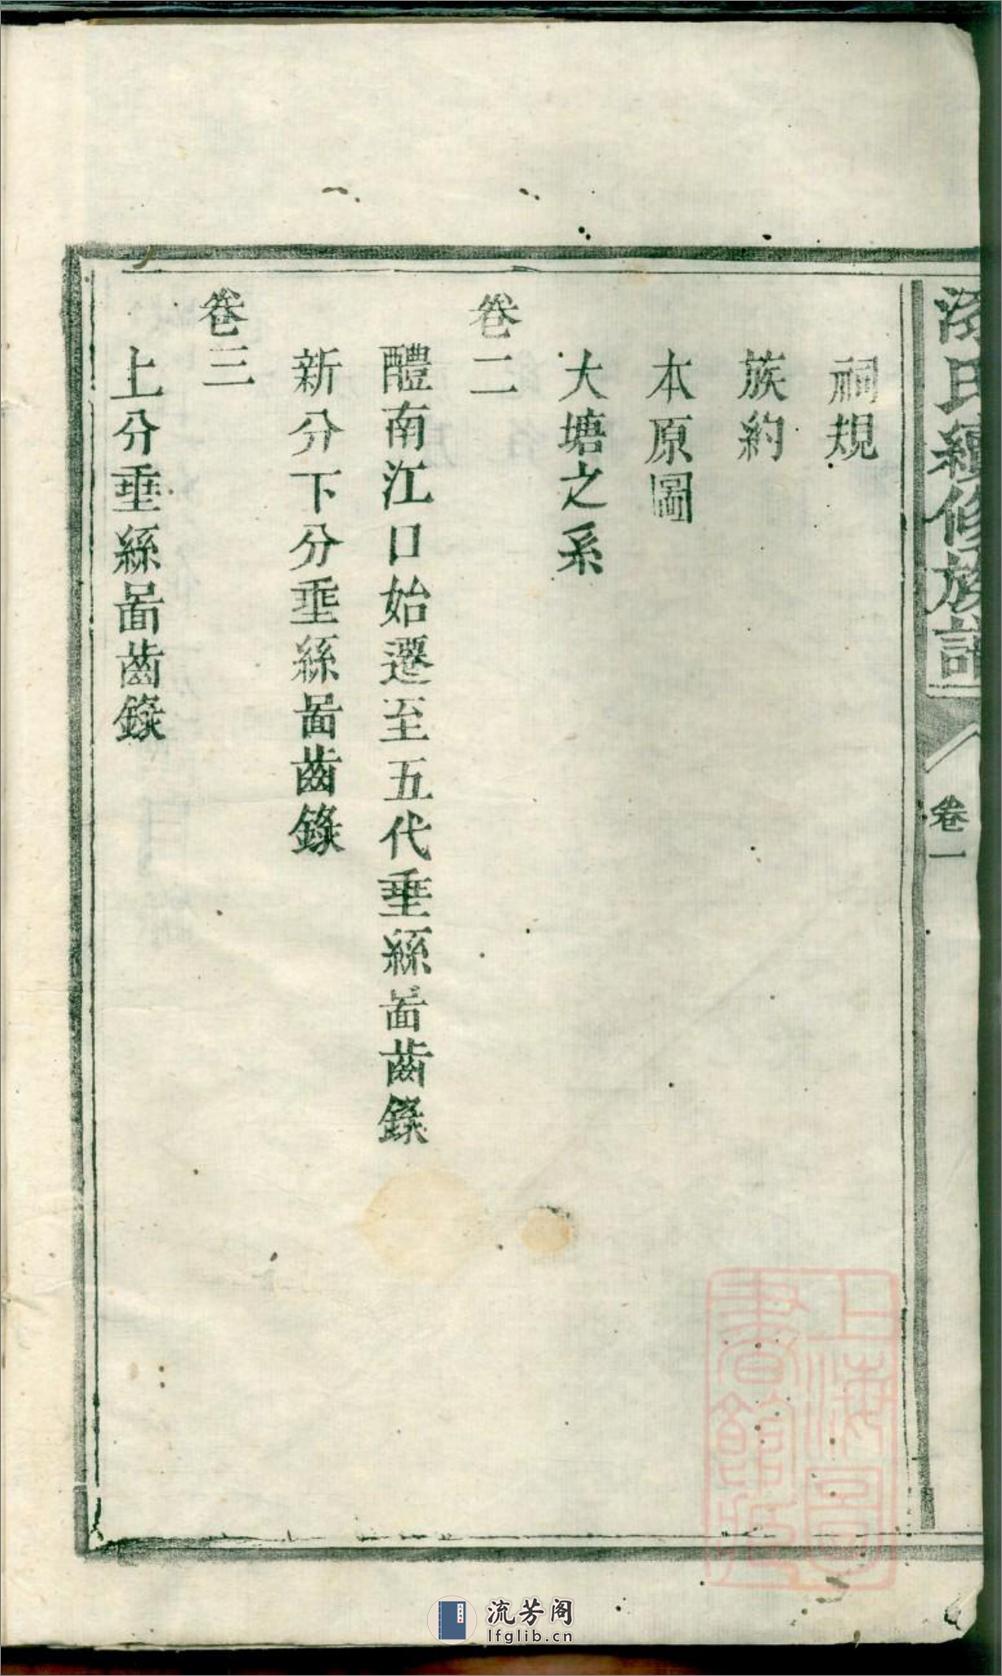 氏續修族譜
卷一
祠規
族約
本原圖
大塘之系
卷二
醴南江口始遷至五代垂絲啚齒錄
新分下分垂絲啚齒錄
卷三
上分垂絲啚齒錄
上海圖書館藏
流芳阁
lfglib.cn